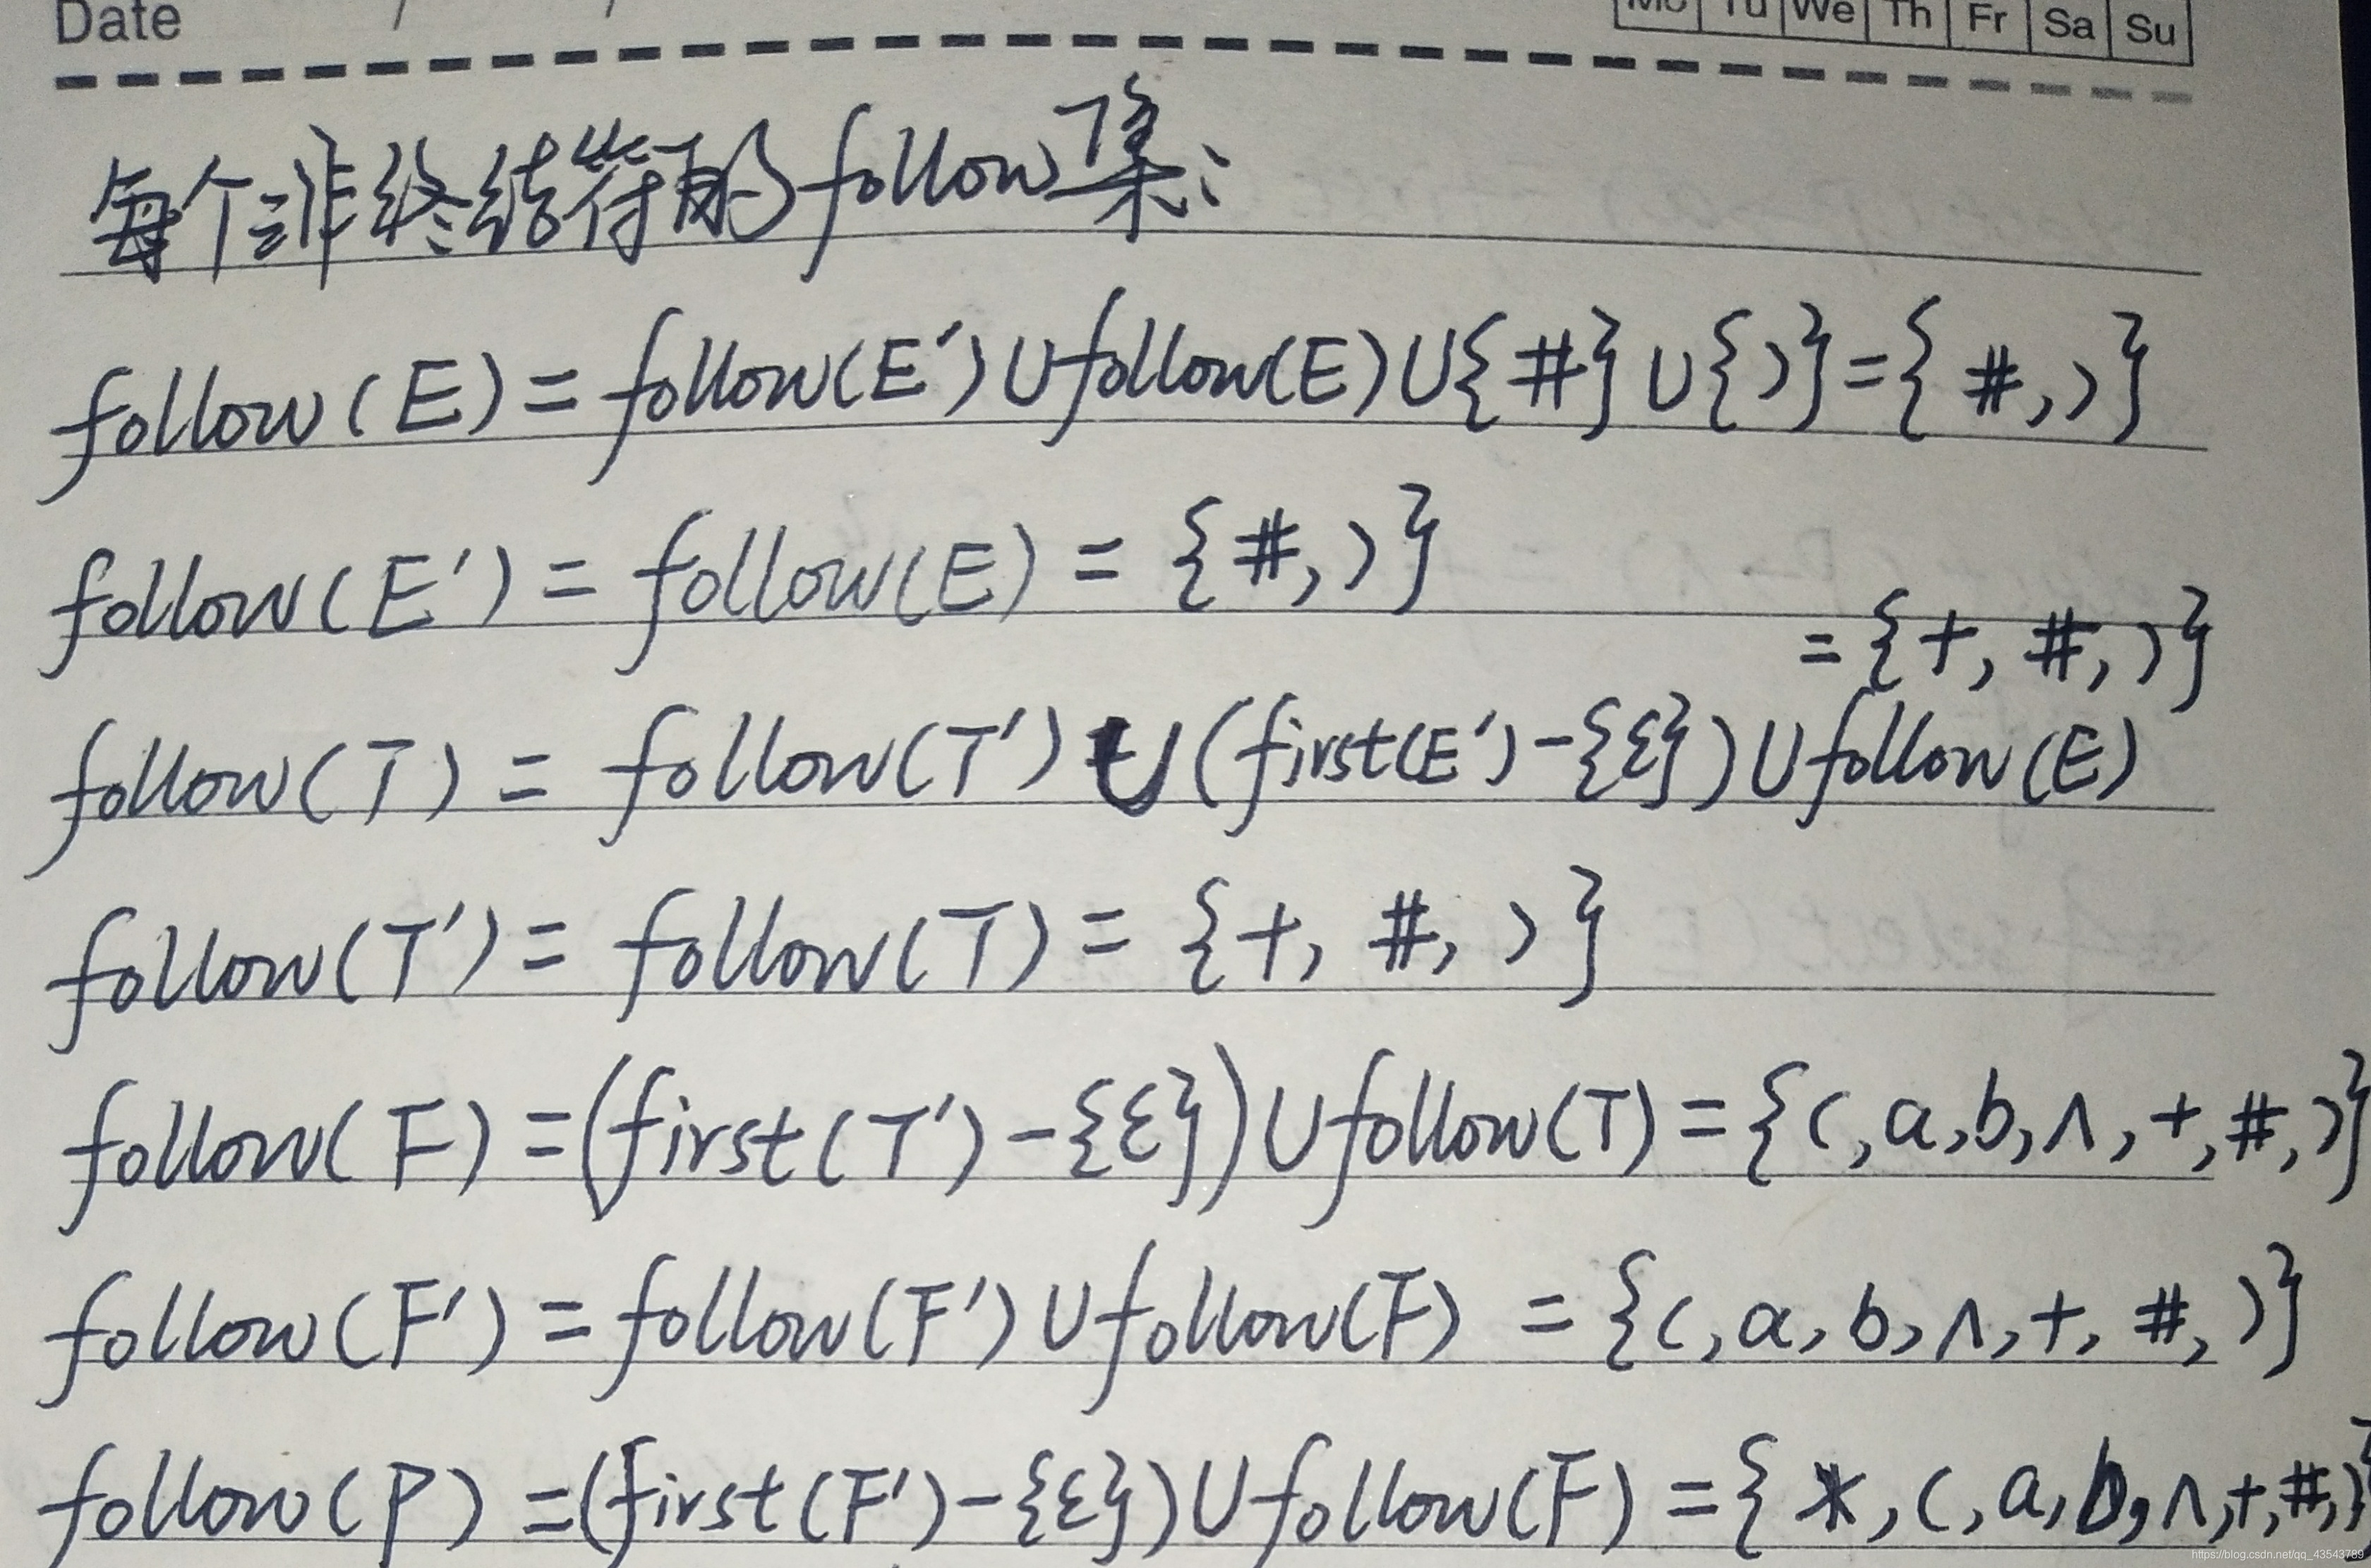 Date / /
Mo Tu We Th Fr Sa Su
每个非终结符的follow集:
follow(E) = follow(E′)∪follow(E)∪{#}∪{)}={#,)}
follow(E′) = follow(E) = {#,)}
={+,#,)}
follow(T) = follow(T′)∪(first(E′)-{ε})∪follow(E)
follow(T′) = follow(T) = {+,#,)}
follow(F) =(first(T′)-{ε})∪follow(T)={(,a,b,∧,+,#,)}
follow(F′) = follow(F′)∪follow(F) ={(,a,b,∧,+,#,)}
follow(P) =(first(F′)-{ε})∪follow(F)={*,(,a,b,∧,+,#,)}
https://blog.csdn.net/qq_43543789